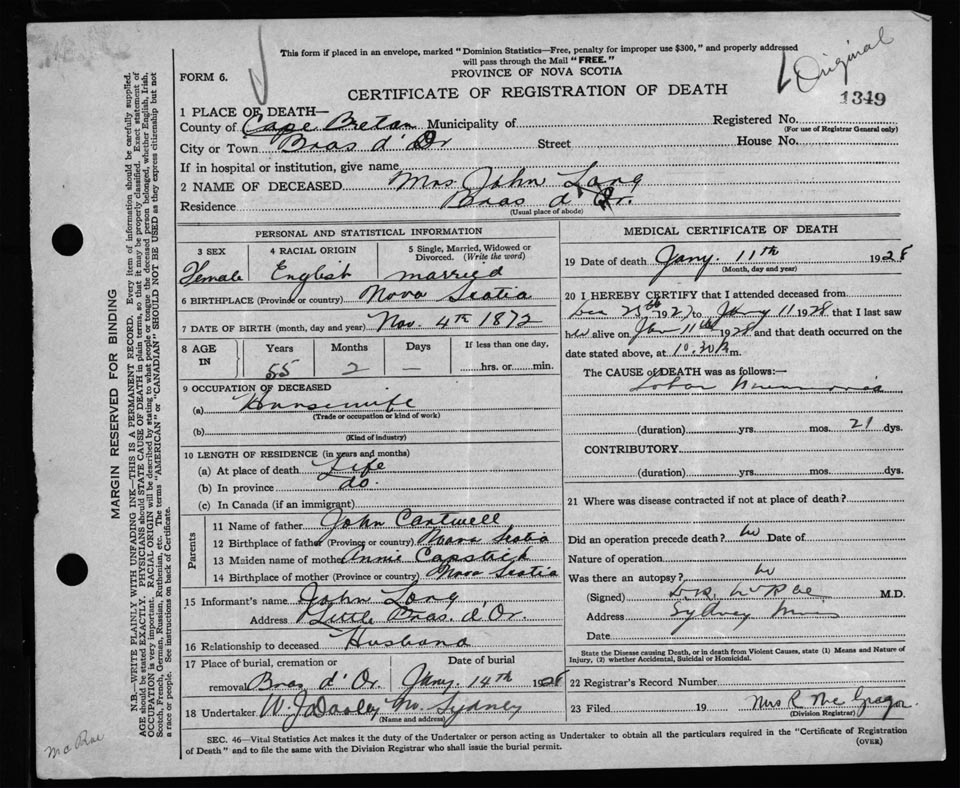 Original
1349
This form if placed in an envelope, marked "Dominion Statistics—Free, penalty for improper use $300," and properly addressed
will pass through the Mail "FREE."
FORM 6.
PROVINCE OF NOVA SCOTIA
CERTIFICATE OF REGISTRATION OF DEATH
1 PLACE OF DEATH—
County of Cape Breton Municipality of Registered No.
(For use of Registrar General only)
City or Town Bras d'Or Street House No.
If in hospital or institution, give name
2 NAME OF DECEASED Mrs John Long
Residence Bras d'Or.
(Usual place of abode)
PERSONAL AND STATISTICAL INFORMATION
3 SEX 4 RACIAL ORIGIN 5 Single, Married, Widowed or Divorced. (Write the word)
Female English married
6 BIRTHPLACE (Province or country) Nova Scotia
7 DATE OF BIRTH (month, day and year) Nov. 4th 1872
8 AGE IN Years Months Days If less than one day,
55 2 — hrs. or min.
9 OCCUPATION OF DECEASED
(a) Housewife
(Trade or occupation or kind of work)
(b)
(Kind of industry)
10 LENGTH OF RESIDENCE (in years and months)
(a) At place of death Life
(b) In province do.
(c) In Canada (if an immigrant)
Parents
11 Name of father John Cantwell
12 Birthplace of father (Province or country) Nova Scotia
13 Maiden name of mother Annie Capstick
14 Birthplace of mother (Province or country) Nova Scotia
15 Informant's name John Long
Address Little Bras. d'Or.
16 Relationship to deceased Husband
17 Place of burial, cremation or Date of burial
removal Bras d'Or Jany. 14th 1928
18 Undertaker W. J. Dooley No. Sydney
(Name and address)
MEDICAL CERTIFICATE OF DEATH
19 Date of death Jany. 11th 1928
(Month, day and year)
20 I HEREBY CERTIFY that I attended deceased from
Dec 1927 to Jany 11 1928 that I last saw
her alive on Jan 11th 1928 and that death occurred on the
date stated above, at 10.30 m.
The CAUSE of DEATH was as follows:—
Lobar Pneumonia
(duration) yrs. mos. 21 dys.
CONTRIBUTORY
(duration) yrs. mos. dys.
21 Where was disease contracted if not at place of death?
Did an operation precede death? No Date of
Nature of operation
Was there an autopsy? No
(Signed) M.D.
Address Sydney Mines
Date
State the Disease causing Death, or in death from Violent Causes, state (1) Means and Nature of
Injury, (2) whether Accidental, Suicidal or Homicidal.
22 Registrar's Record Number
23 Filed 19 Mrs R McGregor
(Division Registrar)
SEC. 46—Vital Statistics Act makes it the duty of the Undertaker or person acting as Undertaker to obtain all the particulars required in the "Certificate of Registration
of Death" and to file the same with the Division Registrar who shall issue the burial permit.
(OVER)
MARGIN RESERVED FOR BINDING
N.B.—WRITE PLAINLY WITH UNFADING INK—THIS IS A PERMANENT RECORD. Every item of information should be carefully supplied.
AGE should be stated EXACTLY. PHYSICIANS should STATE CAUSE OF DEATH in plain terms, so that it may be properly classified. Exact statement of
OCCUPATION is very important. RACIAL ORIGIN will be described by stating to what people or tongue the deceased person belonged, whether English, Irish,
Scotch, French, German, Russian, Ruthenian, etc. The terms "AMERICAN" or "CANADIAN" SHOULD NOT BE USED as they express citizenship but not
a race or people. See instructions on back of Certificate.
McRae